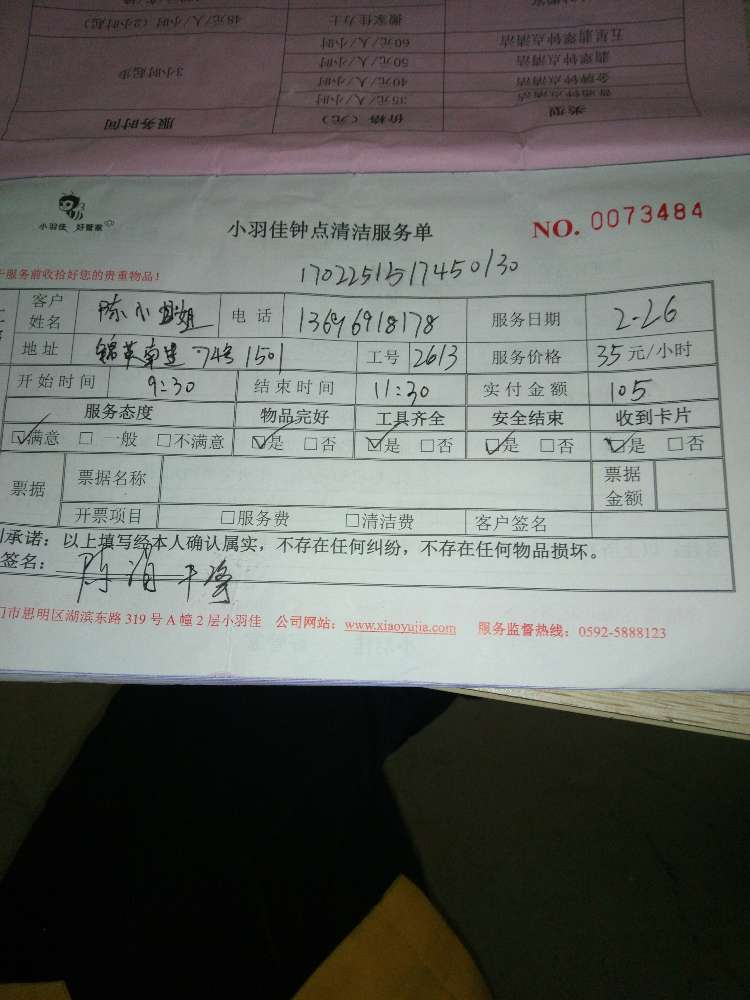 搬家佳力士 48元/人/小时（2小时起）
五星翡翠钟点清洁 60元/人/小时
翡翠钟点清洁 50元/人/小时 3小时起步
金牌钟点清洁 40元/人/小时
普通钟点清洁 35元/人/小时
类型 价格（元） 服务时间
小羽佳 好管家
小羽佳钟点清洁服务单
NO. 0073484
服务前收拾好您的贵重物品！
客户姓名 陈小姐 电话 13696918178 服务日期 2-26
地址 74号1501 工号 2613 服务价格 35元/小时
开始时间 9:30 结束时间 11:30 实付金额 105
服务态度 物品完好 工具齐全 安全结束 收到卡片
☑满意 □一般 □不满意 ☑是 □否 ☑是 □否 ☑是 □否 ☑是 □否
票据 票据名称 票据金额
开票项目 □服务费 □清洁费 客户签名
承诺：以上填写经本人确认属实，不存在任何纠纷，不存在任何物品损坏。
签名：
门市思明区湖滨东路 319 号 A 幢 2 层小羽佳 公司网站：www.xiaoyujia.com 服务监督热线：0592-5888123